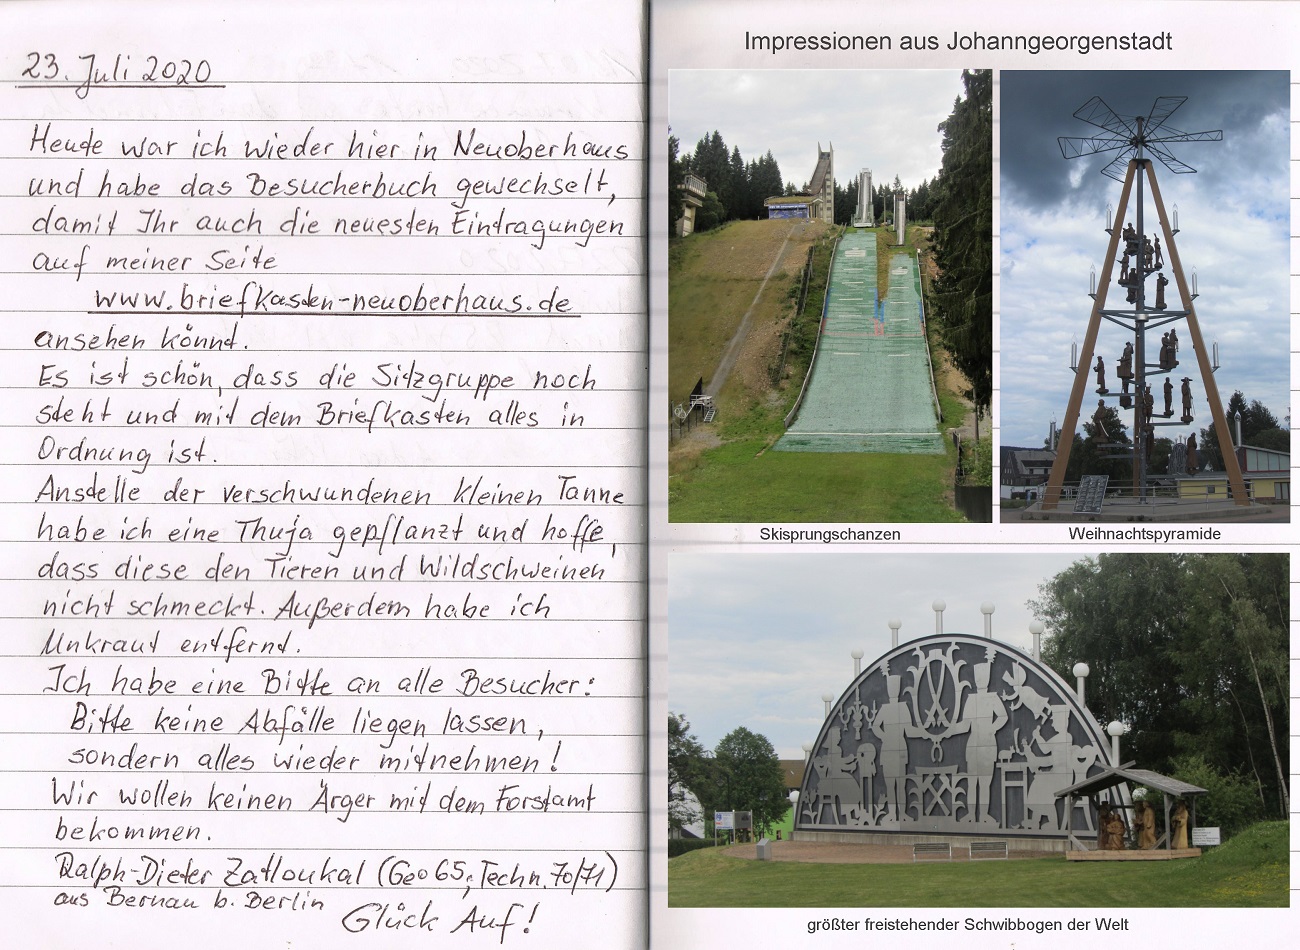 23. Juli 2020
Heute war ich wieder hier in Neuoberhaus
und habe das Besucherbuch gewechselt,
damit Ihr auch die neuesten Eintragungen
auf meiner Seite
www.briefkasten-neuoberhaus.de
ansehen könnt.
Es ist schön, dass die Sitzgruppe noch
steht und mit dem Briefkasten alles in
Ordnung ist.
Anstelle der verschwundenen kleinen Tanne
habe ich eine Thuja gepflanzt und hoffe,
dass diese den Tieren und Wildschweinen
nicht schmeckt. Außerdem habe ich
Unkraut entfernt.
Ich habe eine Bitte an alle Besucher:
Bitte keine Abfälle liegen lassen,
sondern alles wieder mitnehmen!
Wir wollen keinen Ärger mit dem Forstamt
bekommen.
Ralph-Dieter Zatloukal (Geo 65, Techn. 70/71)
aus Bernau b. Berlin
Glück Auf!
Impressionen aus Johanngeorgenstadt
Skisprungschanzen
Weihnachtspyramide
größter freistehender Schwibbogen der Welt